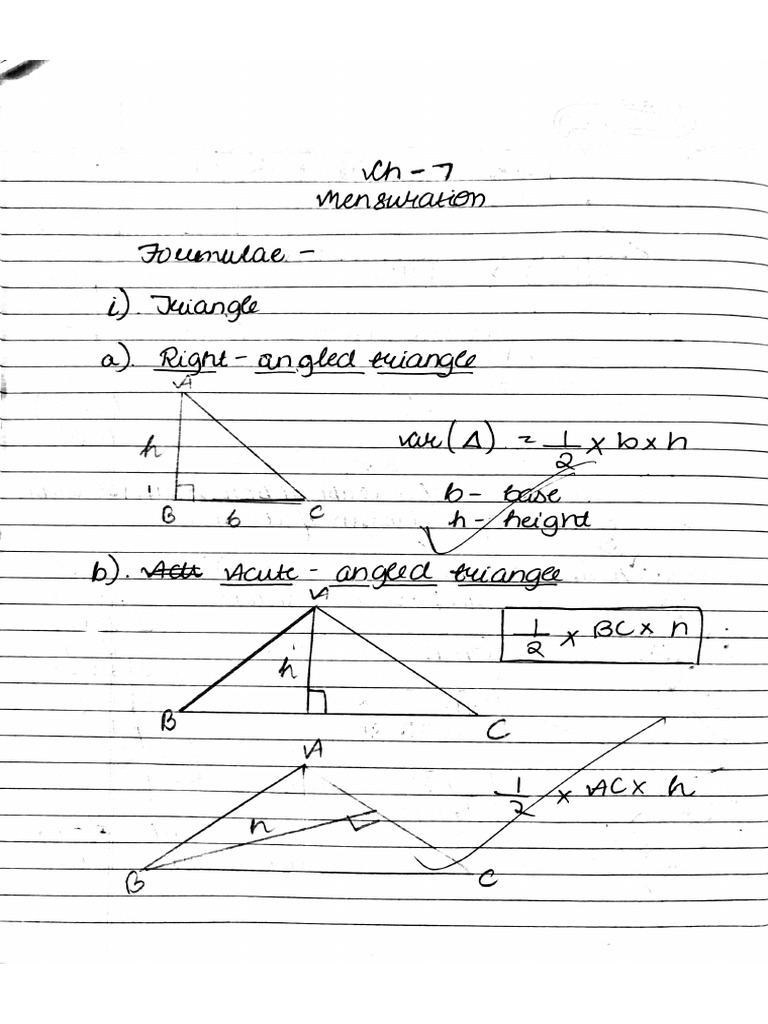 Ch - 7
Mensuration
Formulae -
i). Triangle
a). Right - angled triangle
A
h
ar(Δ) = 1/2 × b × h
b - base
B b C
h - height
b). Acute - angled triangle
A
1/2 × BC × h
h
B C
A
1/2 × AC × h
h
B C